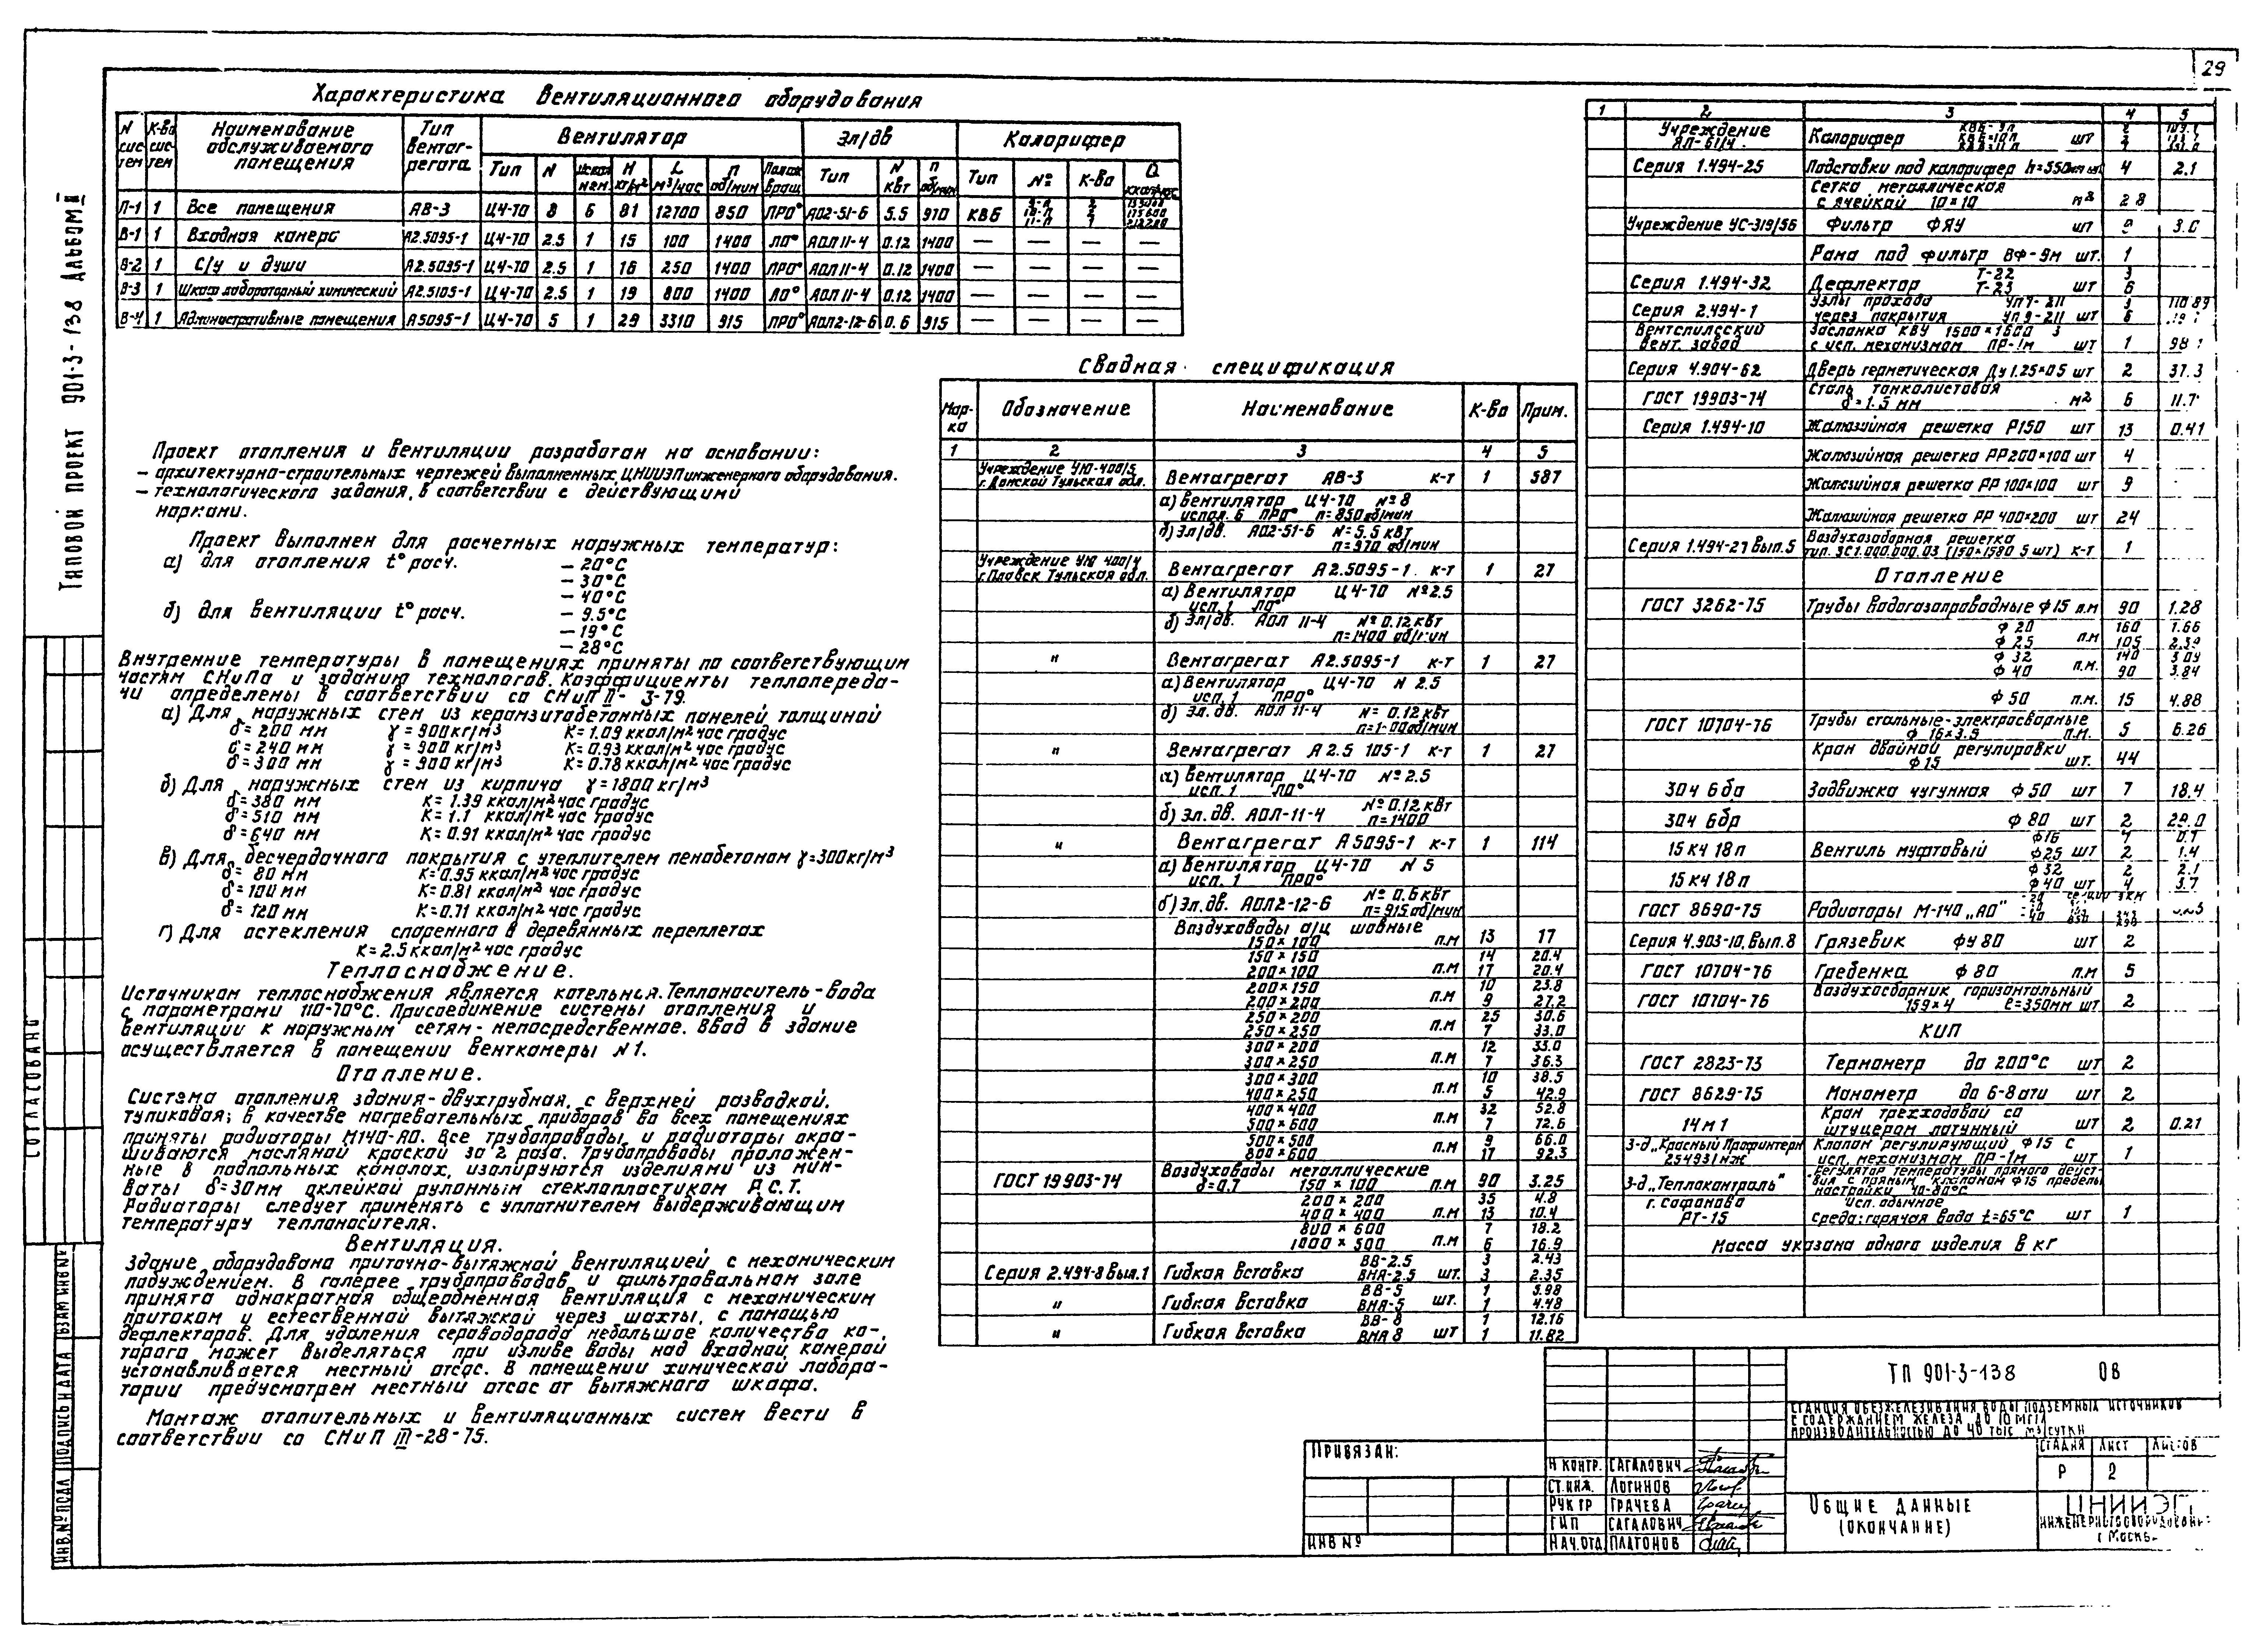 29
ТИПОВОЙ ПРОЕКТ 901-3-138 АЛЬБОМ II
Характеристика вентиляционного оборудования
N сис тем | К-во сис- тем | Наименование обслуживаемого помещения | Тип вентаг- регата | Вентилятор | Эл/дв | Калорифер
Тип | N | H кг/м² | L м³/час | П об/мин | Тип | N кВт | П об/мин | Тип | № | К-во | Q
П-1 1 Все помещения АВ-3 Ц4-70 8 6 81 12700 850 ПРО° АО2-51-6 5.5 970 КВБ
В-1 1 Входная камера А2.5095-1 Ц4-70 2.5 1 15 100 1400 ЛО° АОЛ11-4 0.12 1400 — — — —
В-2 1 С/у и души А2.5095-1 Ц4-70 2.5 1 16 250 1400 ПРО° АОЛ11-4 0.12 1400 — — — —
В-3 1 Шкаф лабораторный химический А2.5105-1 Ц4-70 2.5 1 19 800 1400 ЛО° АОЛ11-4 0.12 1400 — — — —
В-4 1 Административные помещения А5095-1 Ц4-70 5 1 29 3310 915 ПРО° АОЛ2-12-6 0.6 915 — — — —
Проект отопления и вентиляции разработан на основании:
– архитектурно-строительных чертежей выполненных ЦНИИЭП инженерного оборудования.
– технологического задания, в соответствии с действующими
нормами.
Проект выполнен для расчетных наружных температур:
а) для отопления t° расч. – 20°С
– 30°С
– 40°С
б) для вентиляции t° расч. – 9.5°С
– 19°С
– 28°С
Внутренние температуры в помещениях приняты по соответствующим
частям СНиПа и заданию технологов. Коэффициенты теплопереда-
чи определены в соответствии со СНиП II- 3-79.
а) Для наружных стен из керамзитобетонных панелей толщиной
δ= 200 мм γ = 900кг/м³ К= 1.09 ккал/м² час градус
δ= 240 мм γ = 900 кг/м³ К= 0.93 ккал/м² час градус
δ= 300 мм γ = 900 кг/м³ К= 0.78 ккал/м² час градус
б) Для наружных стен из кирпича γ =1800 кг/м³
δ=380 мм К= 1.39 ккал/м² час градус
δ=510 мм К= 1.1 ккал/м² час градус
δ=640 мм К= 0.91 ккал/м² час градус
в) Для бесчердачного покрытия с утеплителем пенобетоном γ=300кг/м³
δ= 80 мм К=0.95 ккал/м² час градус
δ= 100 мм К=0.81 ккал/м² час градус
δ= 120 мм К=0.71 ккал/м² час градус
г) Для остекления спаренного в деревянных переплетах
К= 2.5 ккал/м² час градус
Теплоснабжение.
Источником теплоснабжения является котельная. Теплоноситель-вода
с параметрами 110-70°С. Присоединение системы отопления и
вентиляции к наружным сетям- непосредственное. Ввод в здание
осуществляется в помещении венткамеры N1.
Отопление.
Система отопления здания-двухтрубная, с верхней разводкой,
тупиковая; в качестве нагревательных приборов во всех помещениях
приняты радиаторы М140-АО. Все трубопроводы и радиаторы окра-
шиваются масляной краской за 2 раза. Трубопроводы проложен-
ные в подпольных каналах, изолируются изделиями из мин-
ваты δ=30мм оклейкой рулонным стеклопластиком Р.С.Т.
Радиаторы следует применять с уплотнителем выдерживающим
температуру теплоносителя.
Вентиляция.
Здание оборудовано приточно-вытяжной вентиляцией с механическим
побуждением. В галерее трубопроводов и фильтровальном зале
принята однократная общеобменная вентиляция с механическим
притоком и естественной вытяжкой через шахты, с помощью
дефлекторов. Для удаления сероводорода небольшое количество ко-
торого может выделяться при изливе воды над входной камерой
устанавливается местный отсос. В помещении химической лабора-
тории предусмотрен местный отсос от вытяжного шкафа.
Монтаж отопительных и вентиляционных систем вести в
соответствии со СНиП III-28-75.
Сводная спецификация
Мар- ка | Обозначение | Наименование | К-во | Прим.
1 2 3 4 5
Учреждение УЮ-400/5 г. Донской Тульская обл. Вентагрегат АВ-3 к-т 1 587
а) Вентилятор Ц4-70 №8
испол. 6 ПРО° п=850об/мин
б) Эл/дв. АО2-51-6 N=5.5 кВт
п=970 об/мин
Учреждение УЮ 400/4 г. Плавск Тульская обл. Вентагрегат А2.5095-1 к-т 1 27
а) Вентилятор Ц4-70 №2.5
исп. 1 ЛО°
б) Эл/дв. АОЛ 11-4 № 0.12 кВт
п=1400 об/мин
" Вентагрегат А2.5095-1 к-т 1 27
а) Вентилятор Ц4-70 N 2.5
исп. 1 ПРО°
б) Эл. дв. АОЛ 11-4 N= 0.12 кВт
" Вентагрегат А2.5 105-1 к-т 1 27
а) Вентилятор Ц4-70 №2.5
исп. 1 ЛО°
б) Эл. дв. АОЛ-11-4 № 0.12 кВт
п=1400
" Вентагрегат А5095-1 к-т 1 114
а) Вентилятор Ц4-70 N 5
исп. 1 ПРО°
б) Эл. дв. АОЛ2-12-6 № 0.6 кВт
п=915 об/мин
Воздуховоды а/ц шовные
150×100 п.м 13 17
150×150 14 20.4
200×100 п.м 17 20.4
200×150 10 23.8
200×200 п.м 9 27.2
250×200 25 30.6
250×250 п.м 7 33.0
300×200 12 33.0
300×250 п.м 7 36.3
300×300 10 38.5
400×250 п.м 5 42.9
400×400 32 52.8
500×600 п.м 7 72.6
500×500 9 66.0
800×600 п.м 17 92.3
ГОСТ 19903-74 Воздуховоды металлические
δ=0.7 150×100 п.м 90 3.25
200×200 35 4.8
400×400 п.м 13 10.4
800×600 7 18.2
1000×500 п.м 6 16.9
Серия 2.494-8 вып.1 Гибкая вставка ВВ-2.5 3 2.43
ВНА-2.5 шт. 3 2.35
" Гибкая вставка ВВ-5 1 3.98
ВНА-5 шт. 1 4.48
" Гибкая вставка ВВ-8 1 12.16
ВНА 8 шт 1 11.82
1 2 3 4 5
Учреждение Калорифер шт
Серия 1.494-25 Подставки под калорифер h=550мм шт 4 2.1
Сетка металлическая
с ячейкой 10×10 м² 2.8
Учреждение УС-319/56 Фильтр ФЯУ шт 9 3.0
Рама под фильтр ВФ-9м шт. 1
Серия 1.494-32 Дефлектор Т-22 3
Т-23 шт 6
Серия 2.494-1 Узлы прохода УП7-211 3
через покрытия УП9-211 шт 6
Вентспилсский вент. завод Заслонка КВУ 1600×1000 Э
с исп. механизмом ПР-1м шт 1
Серия 4.904-62 Дверь герметическая Ду 1.25×0.5 шт 2 37.3
ГОСТ 19903-74 Сталь тонколистовая
δ=1.5 мм м² 6 11.7
Серия 1.494-10 Жалюзийная решетка Р150 шт 13 0.41
Жалюзийная решетка РР200×100 шт 4
Жалюзийная решетка РР 100×100 шт 9
Жалюзийная решетка РР 400×200 шт 24
Серия 1.494-27 вып.5 Воздухозаборная решетка
тип. ЗС1.000.000.03 (150×1580 5 шт) к-т 1
Отопление
ГОСТ 3262-75 Трубы водогазопроводные ф15 п.м 90 1.28
ф 20 160 1.66
ф 25 п.м 105 2.39
ф 32 140 3.09
ф 40 п.м. 90 3.84
ф 50 п.м. 15 4.88
ГОСТ 10704-76 Трубы стальные-электросварные
п.м. 5 6.26
Кран двойной регулировки
ф15 шт. 44
30ч 6бр Задвижка чугунная ф 50 шт 7 18.4
30ч 6бр ф 80 шт 2 29.0
15 кч 18п Вентиль муфтовый ф16 4 0.7
ф25 шт 2 1.4
15 кч 18п ф32 2 2.1
ф40 шт 4 3.7
ГОСТ 8690-75 Радиаторы М-140 „АО"
Серия 4.903-10, вып. 8 Грязевик фу 80 шт 2
ГОСТ 10704-76 Гребенка ф 80 п.м 5
ГОСТ 10704-76 Воздухосборник горизонтальный
159×4 ℓ=350мм шт 2
КИП
ГОСТ 2823-73 Термометр до 200°С шт 2
ГОСТ 8629-75 Манометр до 6-8 ати шт 2
14м1 Кран трехходовой со
штуцером латунный шт 2 0.21
З-д „Красный Профинтерн" 25ч931нж Клапан регулирующий ф15 с
исп. механизмом ПР-1м шт 1
З-д „Теплоконтроль" г. Сафоново РТ-15 Регулятор температуры прямого дейст-
вия с прямым клапаном ф15 пределы
настройки 40-80°С
исп. обычное
среда: горячая вода t=65°С шт 1
Масса указана одного изделия в кг
ТП 901-3-138 ОВ
СТАНЦИЯ ОБЕЗЖЕЛЕЗИВАНИЯ ВОДЫ ПОДЗЕМНЫХ ИСТОЧНИКОВ
С СОДЕРЖАНИЕМ ЖЕЛЕЗА ДО 10 МГ/Л
ПРОИЗВОДИТЕЛЬНОСТЬЮ ДО 40 ТЫС М3/СУТКИ
СТАДИЯ ЛИСТ ЛИСТОВ
Р 2
ОБЩИЕ ДАННЫЕ
(ОКОНЧАНИЕ)
ЦНИИЭП
ИНЖЕНЕРНОГО ОБОРУДОВАНИЯ
Г. МОСКВА
ПРИВЯЗАН:
ИНВ №
Н КОНТР. САГАЛОВИЧ
СТ. ИНЖ. ЛОГИНОВ
РУК ГР ГРАЧЕВА
ГИП САГАЛОВИЧ
НАЧ. ОТД ПЛАТОНОВ
СОГЛАСОВАНО
ИНВ. № ПОДЛ ПОДПИСЬ И ДАТА ВЗАМ ИНВ №